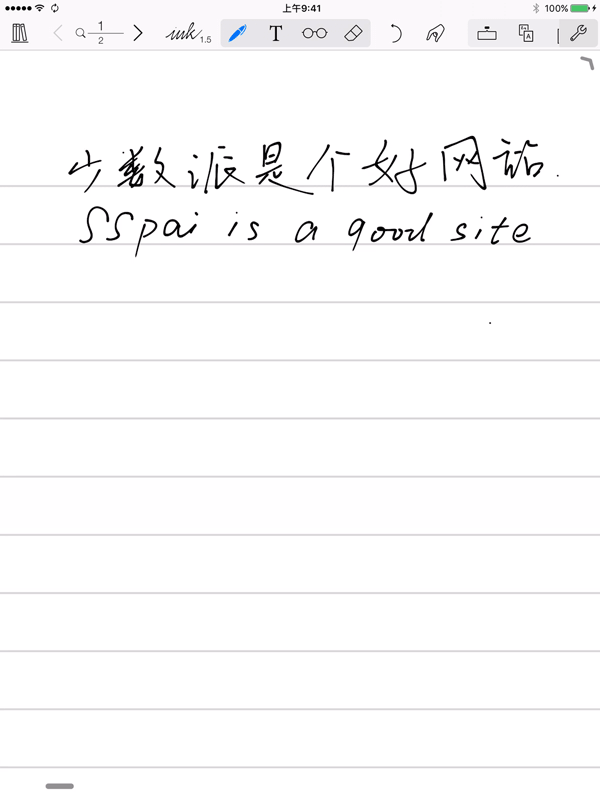 上午9:41
100%
1
2
ink 1.5
T
少数派是个好网站.
SSpai is a good site